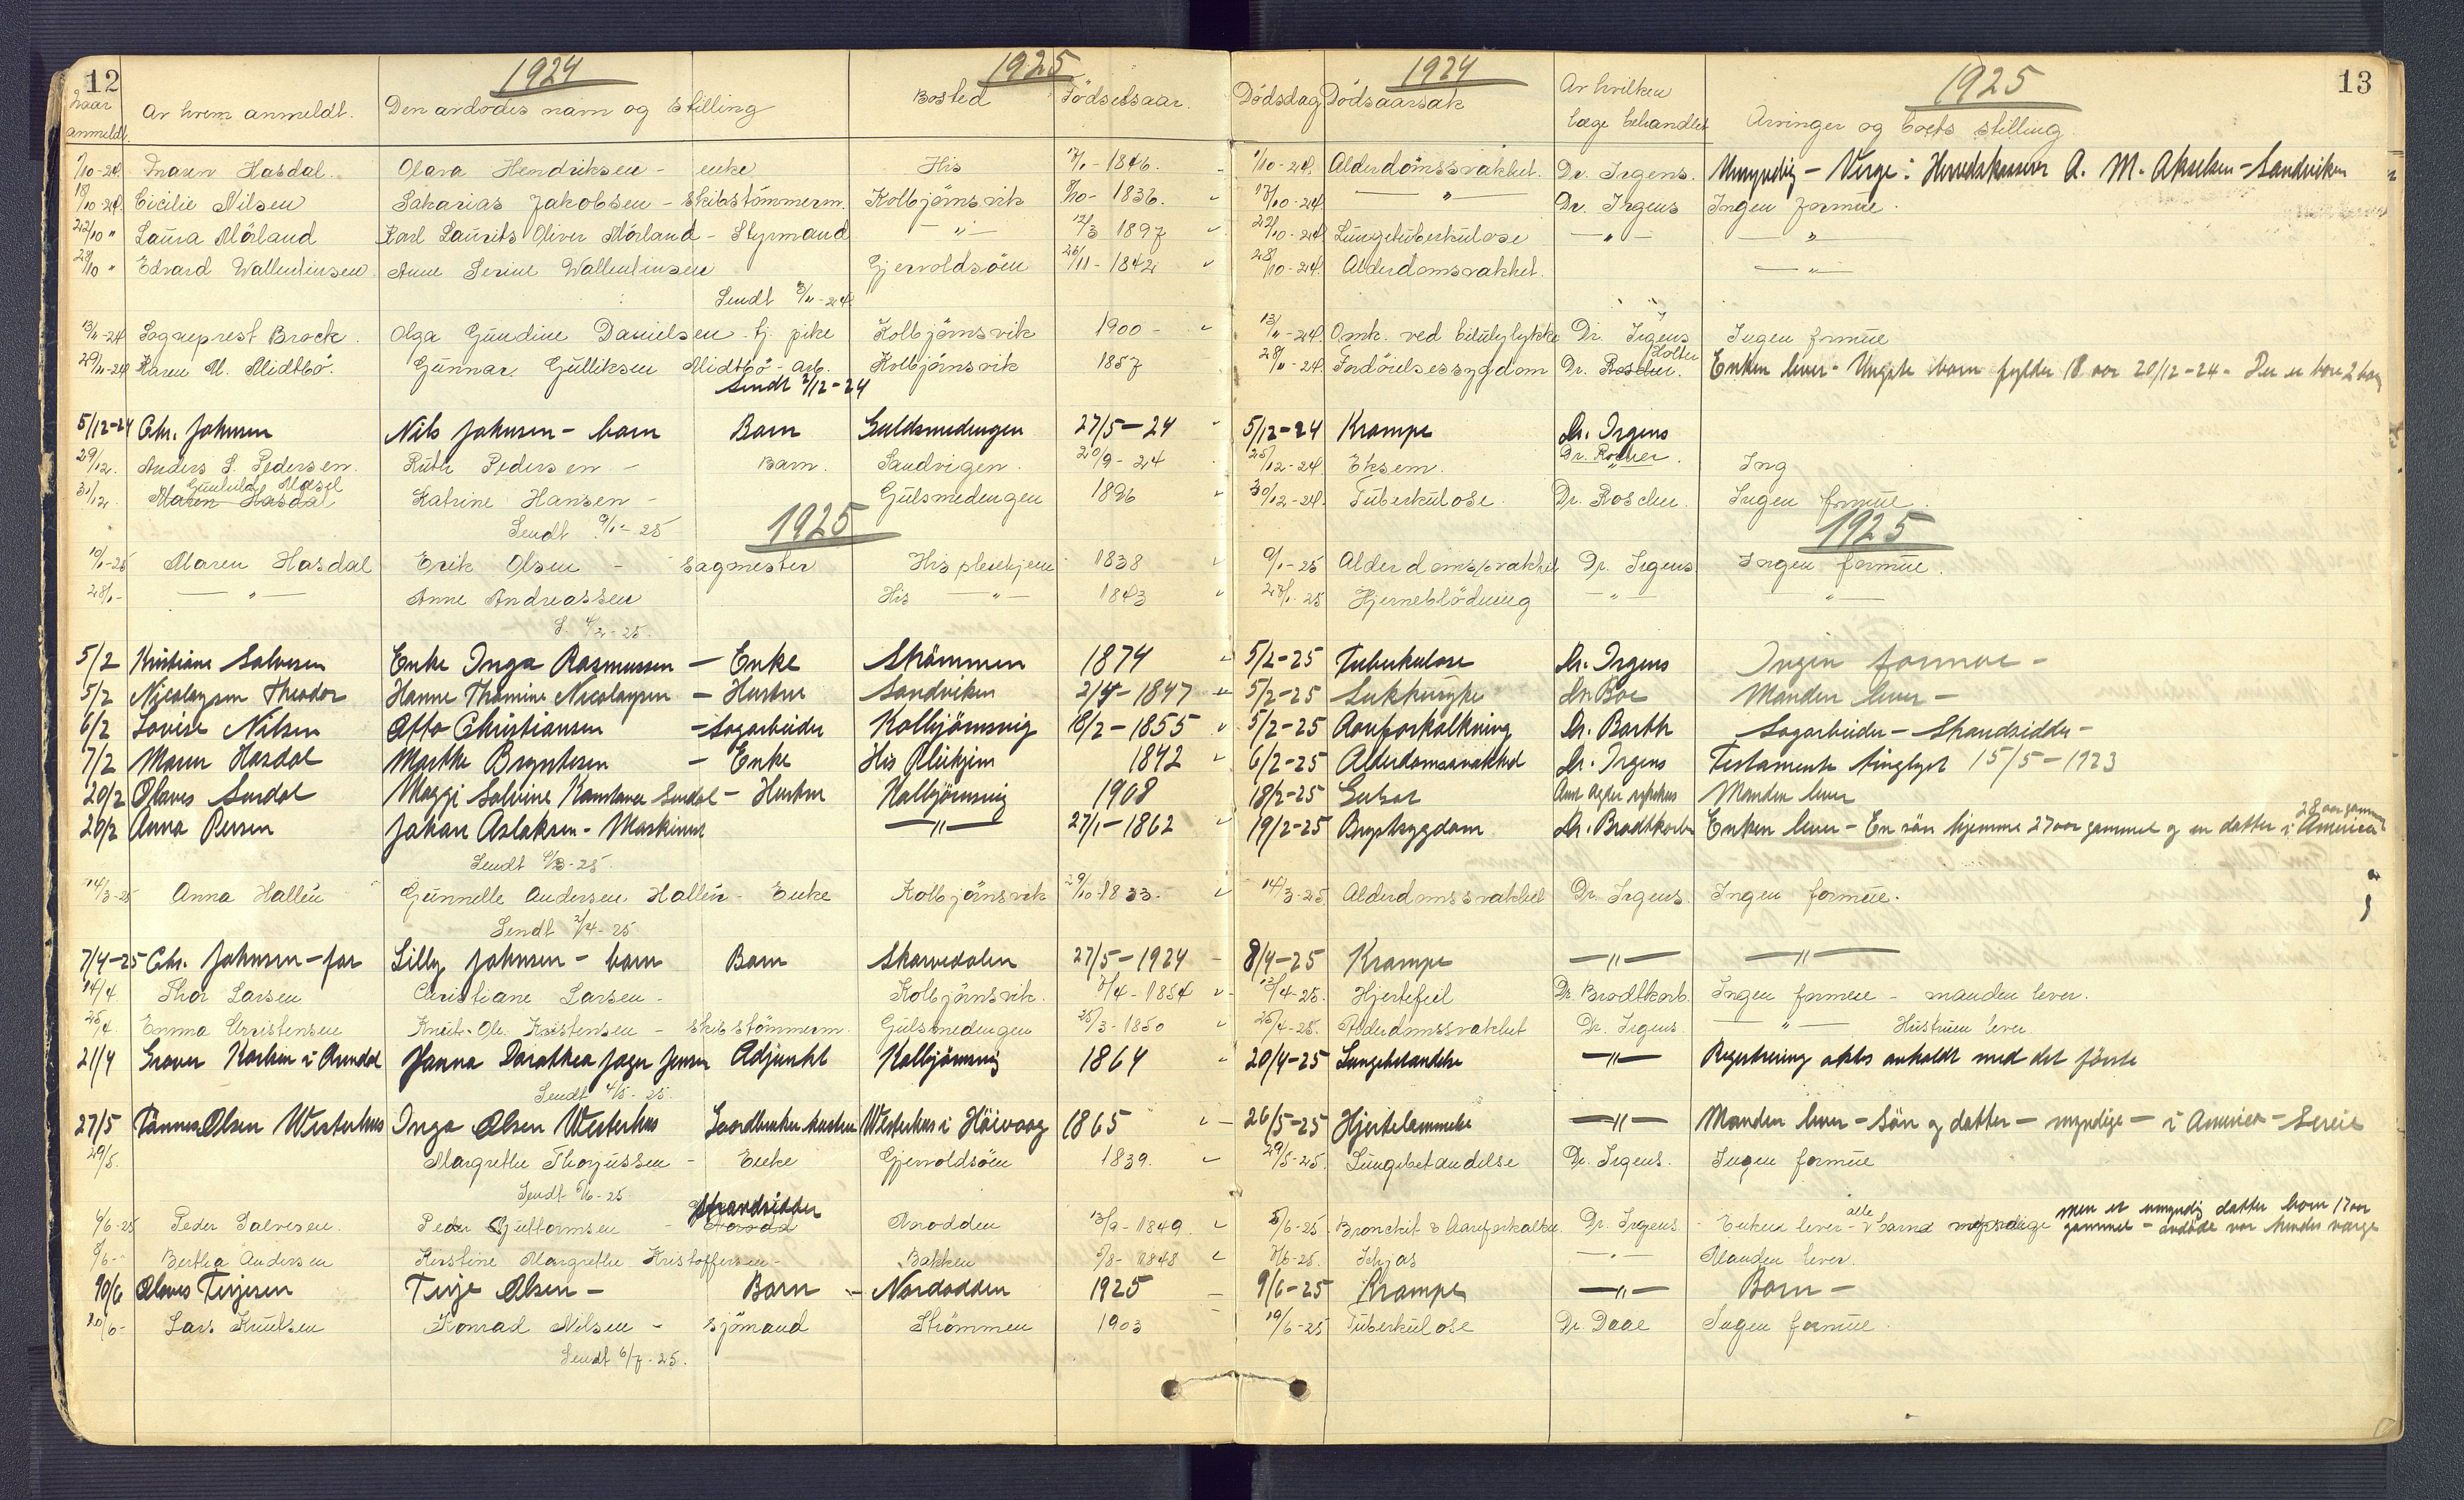 12 1924 1925 1924 1925 13
Naar anmeldt. Av hvem anmeldt. Den avdödes navn og stilling Bosted Födselsaar. Dödsdag Dödsaarsak Av hvilken læge behandlet Arvinger og boets stilling
1/10-24. Maren Hasdal. Olava Hendriksen - enke His 1846. 1/10-24. Alderdomssvakhet. Dr. Irgens. Umyndig - Verge: Herredskasserer A. M. Akselsen - Sandviken
18/10-24. Cicilie Nilsen Sakarias Jakobsen - Skibstömmerm. Kolbjörnsvik 1836. 17/10-24 -"- Dr. Irgens Ingen formue.
22/10 " Laura Mörland Karl Laurits Oliver Mörland - Styrmand -"- 12/3 1897 22/10-24 Lungetuberkulose -"- -"-
28/10 " Edvard Wallentinsen Anne Serine Wallentinsen Gjervoldsöen 26/11-1842 28/10-24. Alderdomsvakhet. -"-
Sendt 3/11-24
13/11-24 Sogneprest Brock. Olga Gundine Danielsen - tj. pike Kolbjörnsvik 1900 - 13/11-24. Omk. ved bilulykke Dr. Irgens Ingen formue
29/11-24 Karen M. Midtbö. Gunnar Gulliksen Midtbö - arb. Kolbjörnsvik 1857 28/11-24. Fordöielsessygdom Dr. Roscher. Holter Enken lever - Yngste barn fylder 18 aar 20/12-24 - Der er bare 2 barn
Sendt 2/12-24
5/12-24 Chr. Johnsen Nils Johnsen - barn Barn Guldsmedengen 27/5-24 5/12-24 Krampe Dr. Irgens
29/12. Anders S. Pedersen. Ruth Pedersen - Barn. Sandvigen. 20/9-24 25/12-24 Eksem. Dr. Roscher. Ing
31/12. Maren Hasdal Gunhild Katrine Hansen - Gulsmedengen 1896 30/12-24. Tuberkulose. Dr. Roscher. Ingen formue.
Sendt 9/1-25 1925 1925
10/1-25 Maren Hasdal Erik Olsen - Sagmester His pleiehjem 1838 9/1-25 Alderdomssvakhet Dr. Irgens Ingen formue.
28/1- -"- Anne Andreassen His -"- 1843 27/1-25 Hjerneblödning -"- -"-
S. 4/2-25.
5/2 Kristiane Salvesen Enke Inga Rasmussen - Enke Strömmen 1874 5/2-25 Tuberkulose Dr. Irgens Ingen formue -
5/2 Nicolaysen Theodor Hanne Thomine Nicolaysen - Hustru Sandviken 2/4-1847 5/2-25 Sukkersyke Dr. Boe Manden lever -
6/2 Lovise Nilsen Otto Christiansen - Sagarbeider Kolbjörnsvig 18/2-1855 5/2-25 Aareforkalkning Dr. Barth Sagarbeider - Strandsidder -
7/2 Maren Hasdal Marthe Bryntesen - Enke His Pleiehjem 1842 6/2-25 Alderdomssvakhet Dr. Irgens Testamente tinglyst 15/5-1923
20/2 Olaves Surdal Maggi Salvine Konstance Surdal - Hustru Kolbjörnsvig 1908 18/2-25 Aust Agder sykehus Manden lever
20/2 Anna Persen Johan Aslaksen - Maskinist -"- 27/1-1862 19/2-25 Brystsygdom Dr. Brodtkorb Enken lever - En sön hjemme 27 aar gammel og en datter i America 28 aar gammel
Sendt 6/3-25
14/3-25 Anna Hallén Gunnelle Andersen Hallén - Enke Kolbjörnsvik 29/10-1833. 14/3-25 Alderdomssvakhet Dr. Irgens. Ingen formue.
Sendt 2/4-25
7/4-25 Chr. Johnsen - far Lilly Johnsen - barn Barn Skarvedalen 27/5-1924 8/4-25 Krampe -"- -"-
14/4 Thor Larsen Christiane Larsen - Kolbjörnsvik. 7/4-1854 13/4-25. Hjertefeil Dr. Brodtkorb. Ingen formue - manden lever.
25/4. Emma Christensen Knut Ole Kristensen - Skibstömmerm. Gulsmedengen 25/3-1850 25/4-25. Alderdomssvakhet Dr. Irgens -"- Hustruen lever.
21/4 Graver Karlsen i Arendal Hanna Dorothea Jager Jensen Adjunkt Kolbjörnsvig 1864 20/4-25 Lungebetændelse -"- Registrering aktes anholdt med det förste
Sendt 4/5-25.
27/5 Tönnes Olsen Westerhus Inga Olsen Westerhus Gaardbruker hustru Westerhus i Höivaag 1865 26/5-25 Hjertelammelse -"- Manden lever - Sön og datter - myndige - i America -
29/5. Margrethe Thorjussen - Enke Gjervoldsöen 1839. 29/5-25. Lungebetændelse Dr. Irgens. Ingen formue
Sendt 6/6-25.
6/6-25 Peder Salvesen. Peder Guttormsen - Strandsidder Aarodden 13/9-1849 5/6-25. Bronchit & Aareforkalkn. Dr. Irgens - Enken lever - alle barna myndige men er umyndig datter barn 17 aar gammel - avdöde var hendes værge
8/6- Bertha Andersen Kirstine Margrethe Kristoffersen - Bakken 5/8-1848 7/6-25. Ischias -"- Manden lever.
10/6 Olaves Terjesen Terje Olsen - Barn - Nordodden 1925 9/6-25 Krampe -"- Barn -
20/6- Lars Knutsen Konrad Nilsen - Sjömand Strömmen 1903 19/6-25 Tuberkulose Dr. Daae Ingen formue.
Sendt 6/7-25.